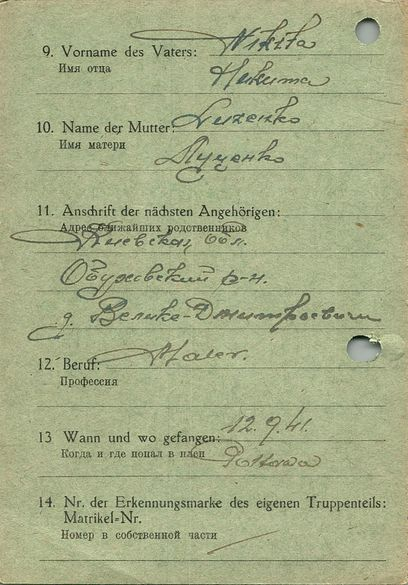 9. Vorname des Vaters: Nikita
Имя отца Никита
10. Name der Mutter: Luzenko
Имя матери
Луценко
11. Anschrift der nächsten Angehörigen:
Адрес ближайших родственников
Киевская обл.
Обуховский р-н.
д. Велике-Дмитровичи
12. Beruf: Maler.
Профессия
13 Wann und wo gefangen: 12.9.41.
Когда и где попал в плен Poltawa
14. Nr. der Erkennungsmarke des eigenen Truppenteils:
Matrikel-Nr.
Номер в собственной части